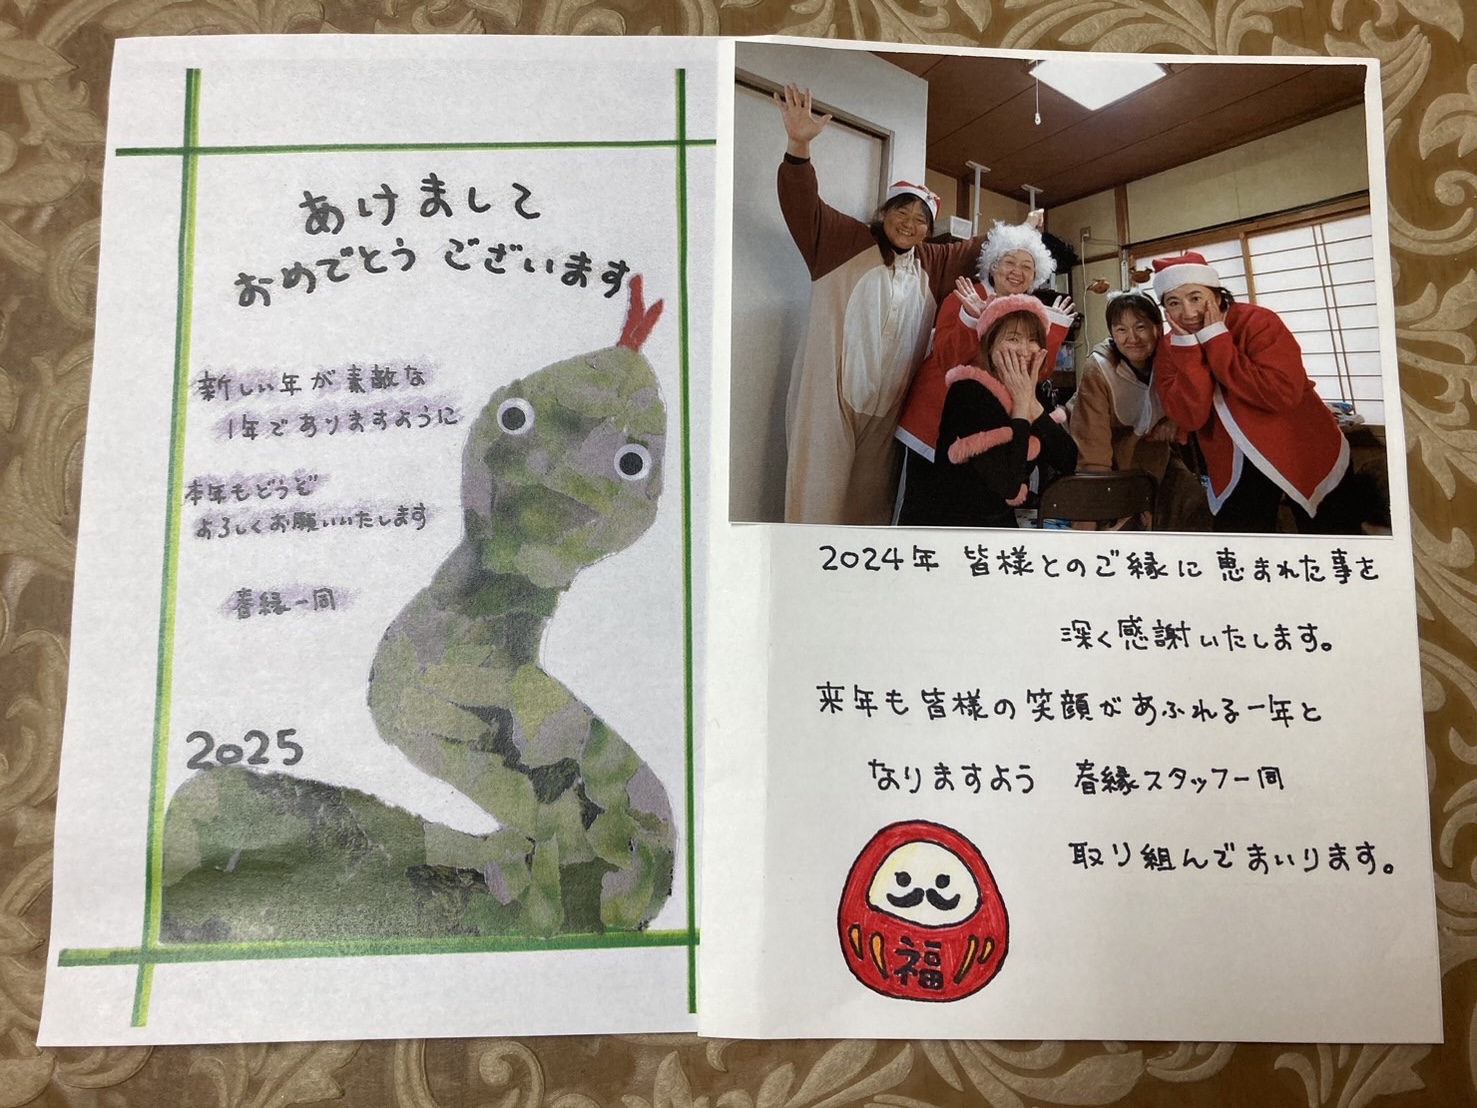 あけまして
おめでとう ございます
新しい年が素敵な
1年でありますように
本年もどうぞ
よろしくお願いいたします
春縁一同
2025
2024年 皆様とのご縁に恵まれた事を
深く感謝いたします。
来年も皆様の笑顔があふれる一年と
なりますよう 春縁スタッフ一同
取り組んでまいります。
福